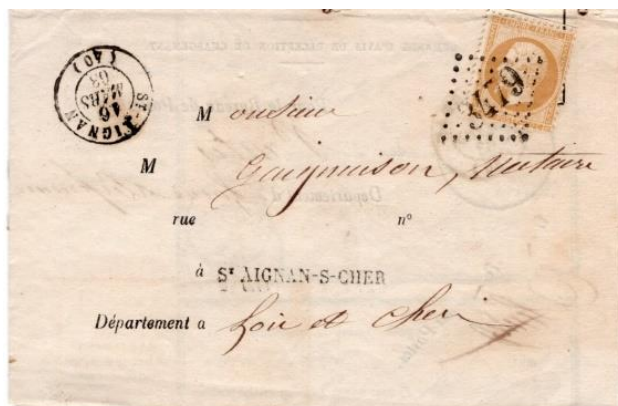 ST AIGNAN
(40)
16
MARS
63
3479
Monsieur
M Gaignaison, Notaire
rue n°
à ST AIGNAN-S-CHER
Département a Loir et Cher